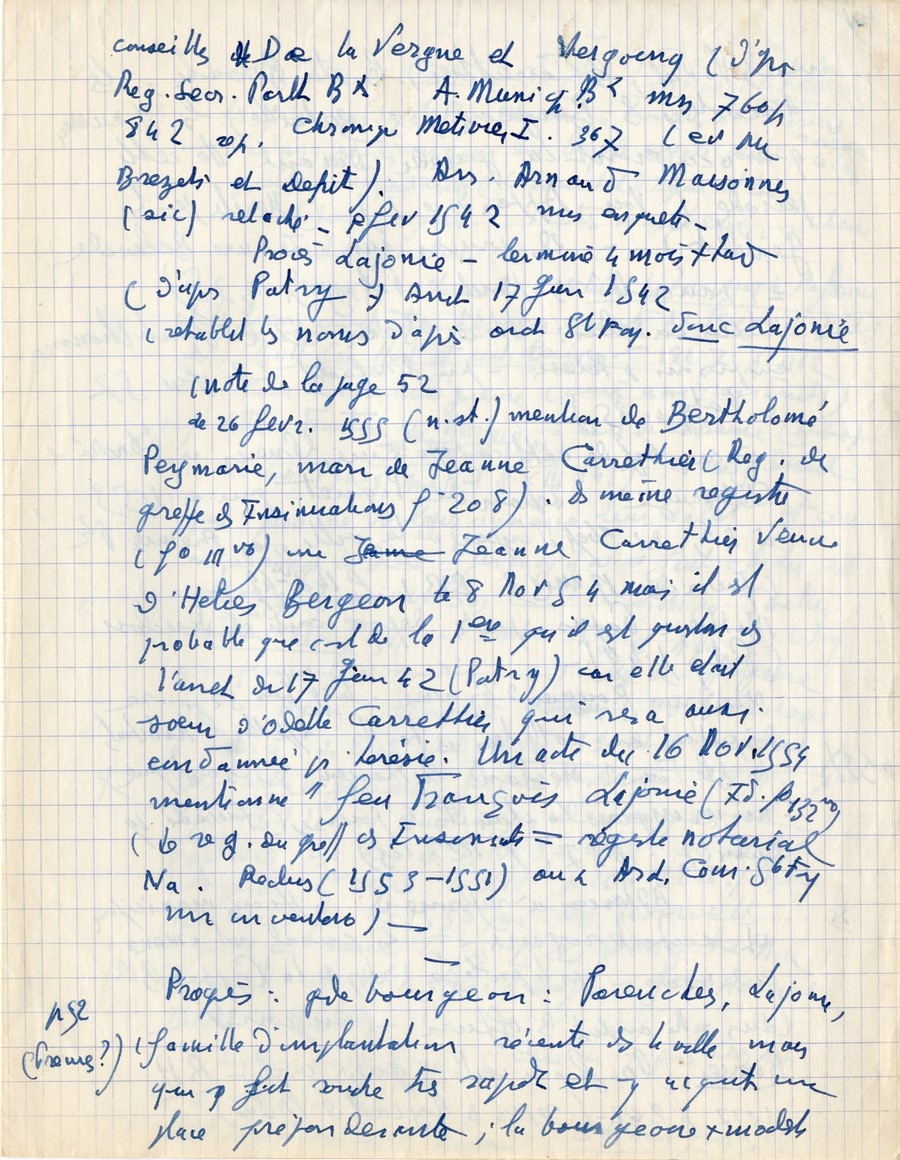 conseillers De la Vergne et Vergoing (d'ap.
Reg. Secr. Parlt Bx A. Munic. Bx ms 760 p
842 rep. Chronique Metivier, I. 367 (
Brezets et depit). Ars. Arnaud Maisonnes
(sic) relaché _ fev 1542 mis enquete _
Procès Lajonie _ terminé 4 mois + tard
(d'aps Patry) Arret 17 Juin 1542
(retablit les noms d'après arch Ste Foy. donc Lajonie
(note de la page 52
de 26 fevr. 1555 (n. st.) mention de Bertholomé
Peymarie, mari de Jeanne Carrethier (Reg. de
greffe des Insinuations f° 208). ds même registre
(fo III vo) une Jeanne Carrethier Veuve
d'Helies Bergeon le 8 Nov 54 mais il est
probable que c'est de la 1ere qu'il est question ds
l'arret du 17 Juin 42 (Patry) car elle etait
soeur d'Odette Carrethier qui sera aussi
condamnée pr heresie. Un acte du 16 Nov. 1554
mentionne "feu François Lajonie (Id. fo 132 vo)
(le reg. du greffe des Insinuats = registre notarial
Na. Reclus (1553-1555) aux Arch. Com. Ste Foy
non inventorié) _
Progrès: pde bourgeoisie: Parenches, Lajonie,
p 52
(Frames?) (famille d'implantation récente ds la ville mais
qui y fait souche très rapidt et y acquit une
place préponderante ; la bourgeoisie + modeste